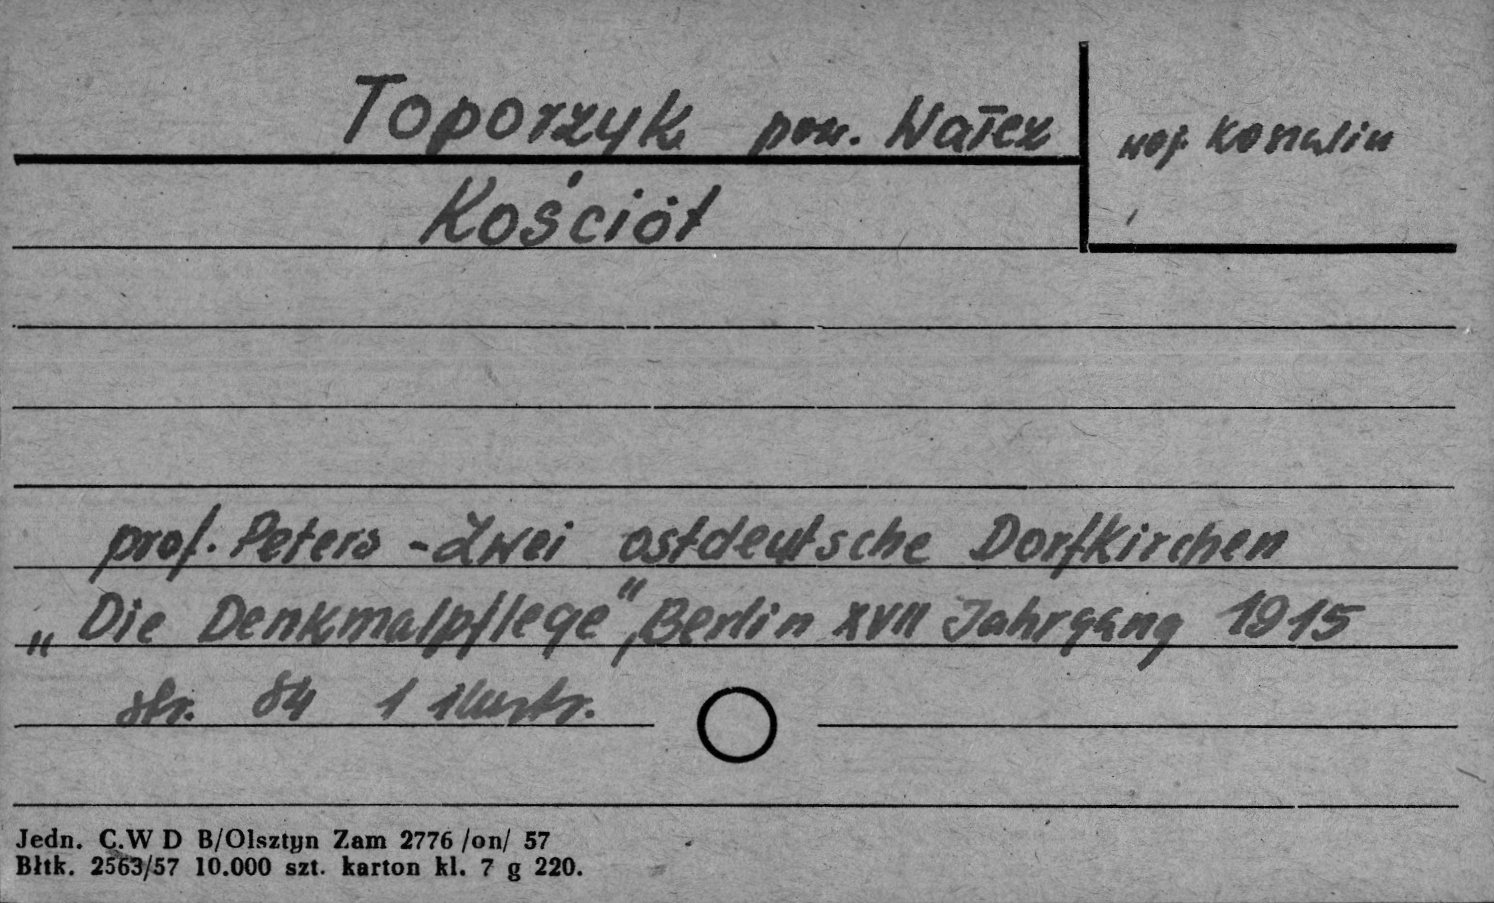 Toporzyk pow. Wałcz
woj. Koszalin
Kościół
prof. Peters - Zwei ostdeutsche Dorfkirchen
„Die Denkmalpflege", Berlin XVII Jahrgang 1915
str. 84 1 ilustr.
Jedn. C.W D B/Olsztyn Zam 2776 /on/ 57
Błtk. 2563/57 10.000 szt. karton kl. 7 g 220.